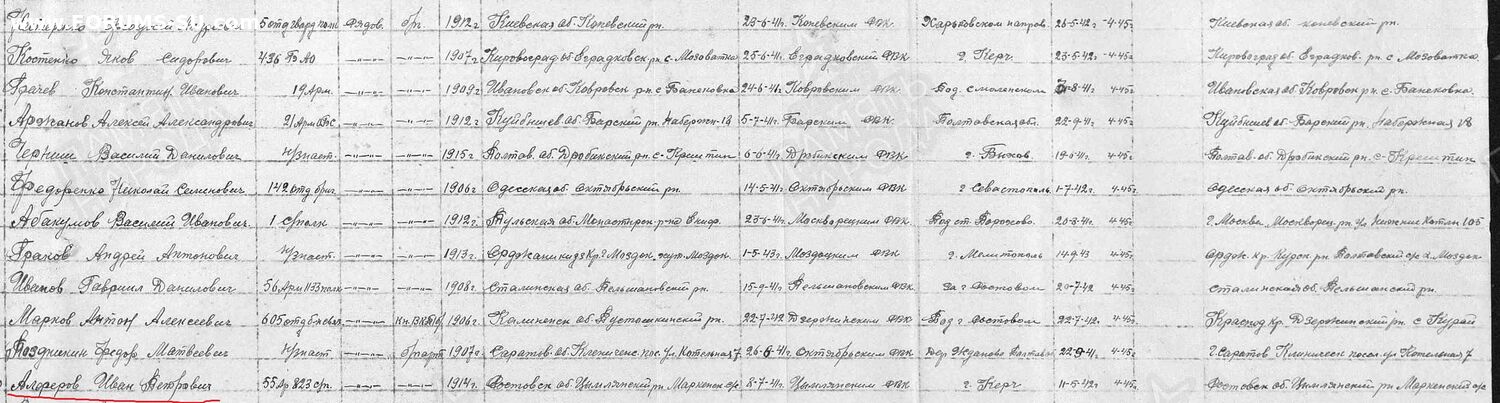 5 отд гвард полк Рядов. б/п. 1912г Киевская об. Каневский рн. 23-6-41г. Каневским РВК Харьковском направ. 26-5-42г -4-45г. Киевская об. каневский рн.
Костенко Яков Сидорович 436 БАО —"—"— —"—"— 1907г Кировоград об Еградковск рн с Мозоватка 25-6-41г. Еградковским РВК г. Керч 23-5-42г 4-45г. Кировоград об Еградков. рн. с Мозоватка.
Грачев Константин Иванович 19 Арм. —"—"— —"—"— 1909г. Ивановск об Ковровск рн. с 24-6-41г Ковровским РВК Под. Смоленском -8-41г 4-45г. Ивановская об. Ковровск рн. с.
Арджанов Алексей Александрович 21 Арм —"—"— —"—"— 1912г Куйбышев об-Барский рн. Набережн-18 5-7-41г Барским РВК. Полтавская об. 22-9-41г 4-45г. Куйбышев об-Барский рн. Набережная 18
Черниш Василий Данилович н/знает —"—"— —"—"— 1915г. Полтав. об. рн. с 6-6-41г РВК г. Быхов 19-6-41г 4-45г. Полтав. об рн. с
Федоренко Николай Семенович 142 отд бриг. —"—"— —"—"— 1906г. Одесская об Октябрьский рн. 14-5-41г Октябрьским РВК г Севастополь 1-7-42г. 4-45г. Одесская об. Октябрьский рн.
Абакумов Василий Иванович. 1 с/полк —"—"— —"—"— 1912г. Тульская об. рн 23-6-41г Москворецким РВК. Под ст 20-8-41г 4-45г. г. Москва. Москворец. рн. ул Нижние Котлы 105
Граков Андрей Антонович н/знает. —"—"— —"—"— 1913г. Орджоникидз Кр. г Моздок, хут. Моздок. 1-5-43г. Моздоцким РВК г. Мелитополь 14-9-43 4-45г. Ордж. кр. Курск рн Полтавский с/с х Моздок
Иванов Гавриил Данилович 56 Арм 1133 полк —"—"— —"—"— 1908г. Сталинская об. рн. 15-9-41г. РВК за г Ростовом 20-7-42 4-45г. Сталинская об. рн.
Марков Антон Алексеевич 605 отд —"—"— кн. ВКП(б) 1906г. Калининск об Пустошкинский рн. 22-7-42 Дзержинским РВК Под г. Ростовом 22-7-42г 4-45г. Краснод кр. Дзержинский рн. с
Позднякин Федор Матвеевич н/знает —"—"— 1907г. Саратов об. пос. ул. Котельная 7 26-6-41г. Октябрьским РВК Дер Жданово Полтавск 22-9-41г 4-45г. г. Саратов посел. ул Котельная 7
Алферов Иван Петрович 55 Ар 823 ср. —"—"— —"—"— 1914г. Ростовск об. Цымлянский рн Маркенск с/с 8-7-41г Цымлянским РВК г. Керч 11-5-42г 4-45г. Ростовск об. Цымлянский рн Маркенский с/с